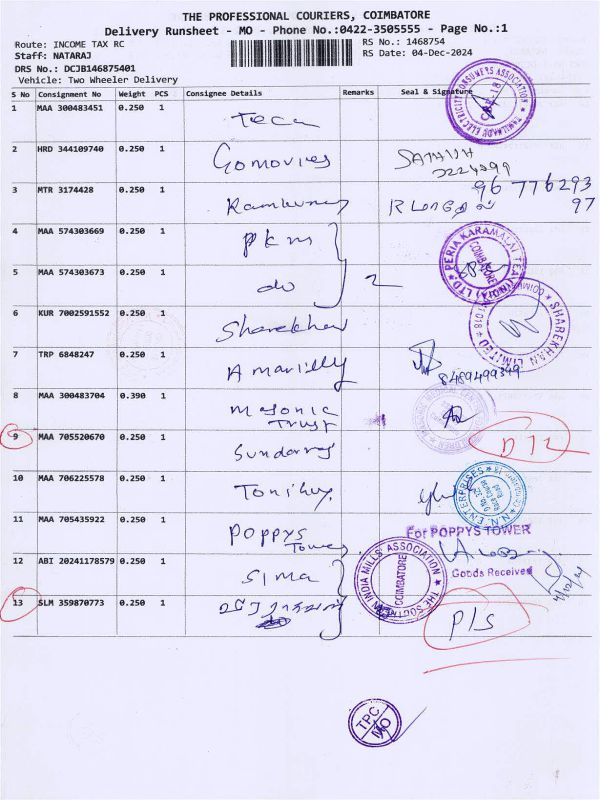 THE PROFESSIONAL COURIERS, COIMBATORE
Delivery Runsheet - MO - Phone No.:0422-3505555 - Page No.:1
Route: INCOME TAX RC
RS No.: 1468754
Staff: NATARAJ
RS Date: 04-Dec-2024
DRS No.: DCJB146875401
Vehicle: Two Wheeler Delivery
S No Consignment No Weight PCS Consignee Details Remarks Seal & Signature
1 MAA 300483451 0.250 1 Teca
TAMILNADU ELECTRICITY CONSUMERS ASSOCIATION
CBE-18
2 HRD 344109740 0.250 1 Gomovies
3 MTR 3174428 0.250 1
96 776293
97
4 MAA 574303669 0.250 1 PKM
PERIA KARAMALAI TEA (INDIA) LTD
COIMBATORE
5 MAA 574303673 0.250 1 do 2
6 KUR 7002591552 0.250 1 Sharekhan
SHAREKHAN LIMITED
7 TRP 6848247 0.250 1 Amarilly
8489499399
8 MAA 300483704 0.390 1 Masonic
Trust
9 MAA 705520670 0.250 1 Sundaraj
D12
10 MAA 706225578 0.250 1
N.N. ENTERPRISES
11 MAA 705435922 0.250 1 Poppys
Tower
For POPPYS TOWER
Goods Received
4/12/24
12 ABI 20241178579 0.250 1 SIMA
THE SOUTHERN INDIA MILLS' ASSOCIATION
COIMBATORE
13 SLM 359870773 0.250 1
P/S
TPC
MO